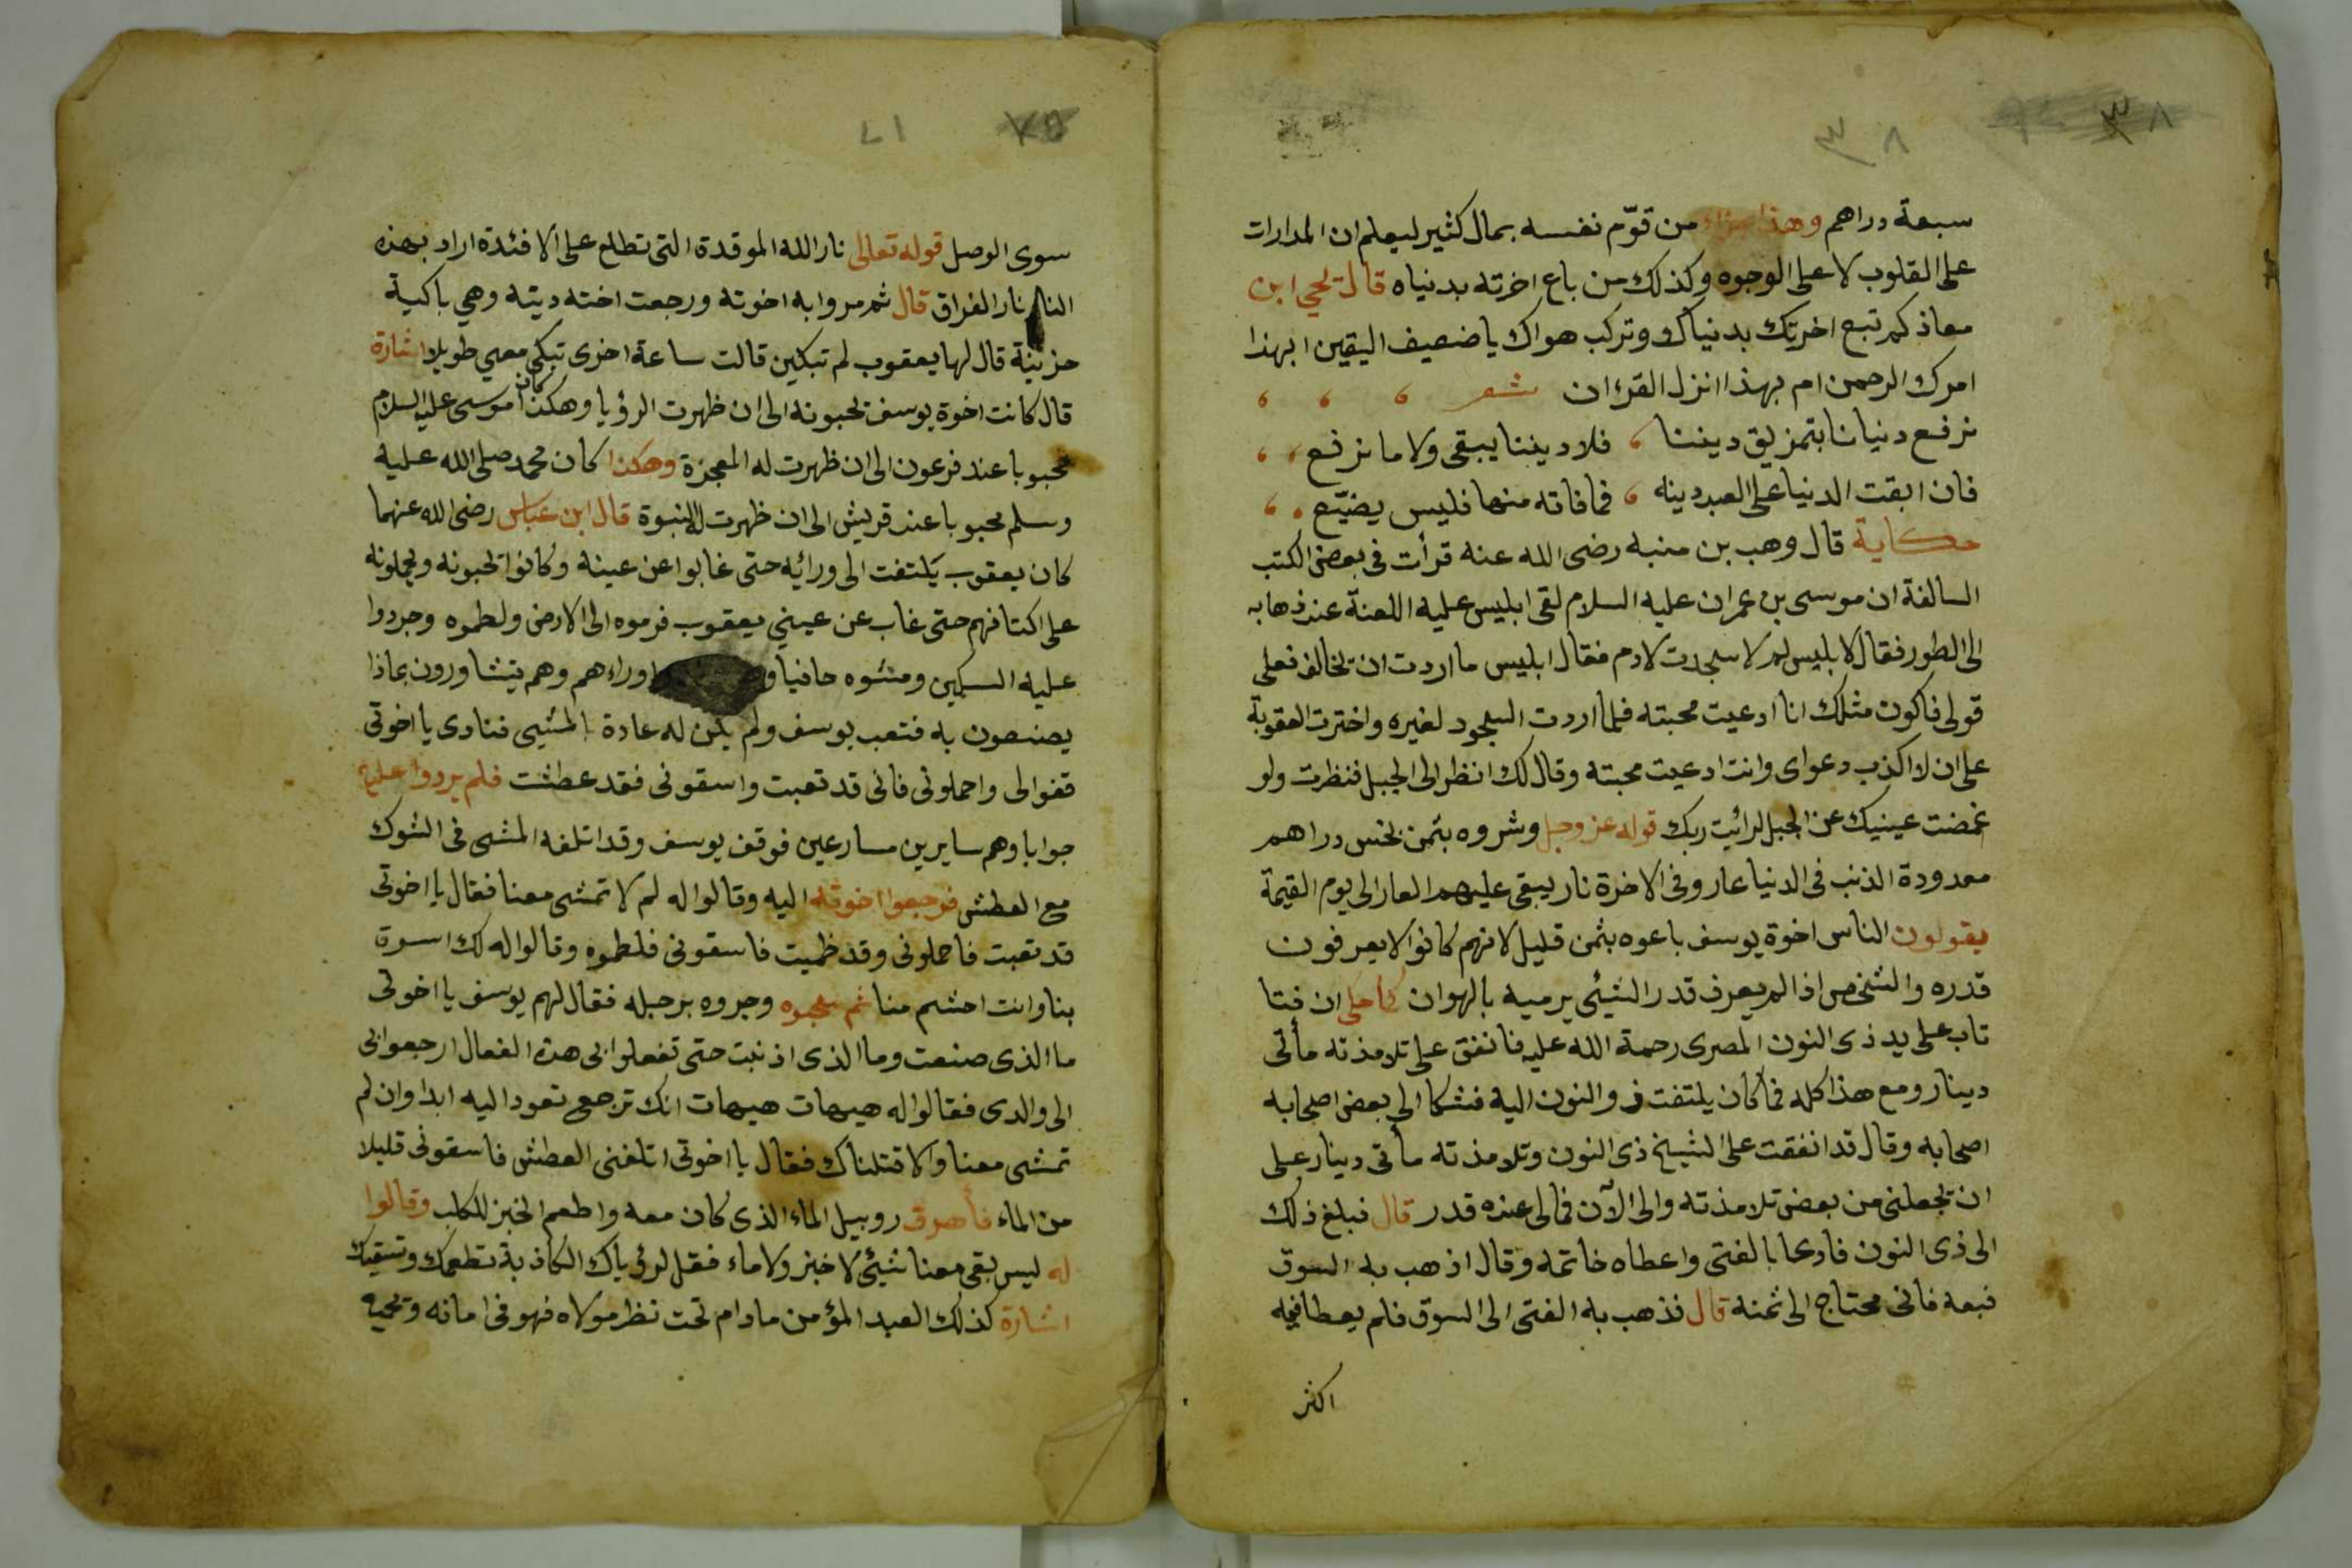 ٣٨
٣٨
سبعة دراهم وهذا جزاء من قوّم نفسه بمال كثير ليعلم ان المدارات
على القلوب لا على الوجوه وكذلك من باع اخرته بدنياه قال يحيى ابن
معاذ كم تبع اخرتك بدنياك وتركب هواك يا ضعيف اليقين ابهذا
امرك الرحمن ام بهذا انزل القرءان شعر
نرفع دنيانا بتمزيق ديننا فلا ديننا يبقى ولا ما نرفع
فان ابقت الدنيا على العبد دينه فما فاته منها فليس يضيّع
حكاية قال وهب بن منبه رضى الله عنه قرأت فى بعض الكتب
السالفة ان موسى بن عمران عليه السلام لقى ابليس عليه اللعنة عند ذهابه
الى الطور فقال لابليس لم لا سجدت لادم فقال ابليس ما اردت ان تخالف فعلى
قولى فاكون مثلك انا ادعيت محبته فلما اردت السجود لغيره واخترت العقوبة
على ان لا اكذب دعواى وانت ادعيت محبته وقال لك انظر الى الجبل فنظرت ولو
غمضت عينيك عن الجبل لرائيت ربك قوله عز وجل وشروه بثمن بخس دراهم
معدودة الذنب فى الدنيا عار وفى الاخرة نار يبقى عليهم العار الى يوم القيمة
يقولون الناس اخوة يوسف باعوه بثمن قليل لانهم كانوا لا يعرفون
قدره والشخص اذا لم يعرف قدر الشيئ يرميه بالهوان كما حلى ان فتا
تاب على يد ذى النون المصرى رحمة الله عليه فانفق على تلامذته مأتى
دينار ومع هذا كله فما كان يلتفت ذو النون اليه فشكا الى بعض اصحابه
اصحابه وقال قد انفقت على الشيخ ذى النون وتلامذته مأتى دينار على
ان تجعلنى من بعض تلامذته والى الآن فما لى عنده قدر قال فبلغ ذلك
الى ذى النون فادعا بالفتى واعطاه خاتمه وقال اذهب به السوق
فبعه فانى محتاج الى ثمنه قال فذهب به الفتى الى السوق فلم يعطا فيه
اكثر
سوى الوصل قوله تعالى نار الله الموقدة التى تطلع على الافئدة اراد بهذه
النار نار الفراق قال ثم مروا به اخوته ورجعت اخته ديته وهى باكية
حزينة قال لها يعقوب لم تبكين قالت ساعة اخرى تبكى معي طويلا اشارة
قال كانت اخوة يوسف تحبونه الى ان ظهرت الرؤيا وهكذا كان موسى عليه السلام
محبوبا عند فرعون الى ان ظهرت له المعجزة وهكذا كان محمد صلى الله عليه
وسلم محبوبا عند قريش الى ان ظهرت له النبوة قال ابن عباس رضى الله عنهما
كان يعقوب يلتفت الى ورائه حتى غابوا عن عينه وكانوا تحبونه ويحملونه
على اكتافهم حتى غاب عن عيني يعقوب فرموه الى الارض ولطموه وجردوا
عليه السكين ومشوه حافيا وراءهم وهم يتشاورون بماذا
يصنعون به فتعب يوسف ولم يكن له عادة بالمشيى فنادى يا اخوتى
قفوا لى واحملونى فانى قد تعبت واسقونى فقد عطشت فلم يردوا عليه
جوابا وهم سايرين مسارعين فوقف يوسف وقد اتلفه المشى فى الشوك
مع العطش فرجعوا اخوته اليه وقالوا له لم لا تمشى معنا فقال يا اخوتى
قد تعبت فاحملونى وقد ظميت فاسقونى فلطموه وقالوا له لك اسوة
بنا وانت احشم منا ثم سحبوه وجروه برجله فقال لهم يوسف يا اخوتى
ما الذى صنعت وما الذى اذنبت حتى تفعلوا بى هذه الفعال ارجعوا بى
الى والدى فقالوا له هيهات هيهات انك ترجع تعود اليه ابدا وان لم
تمشى معنا والا قتلناك فقال يا اخوتى اتلفنى العطش فاسقونى قليلا
من الماء فأهرق روبيل الماء الذى كان معه واطعم الخبز للكلب وقالوا
له ليس بقى معنا شيئ لا خبز ولا ماء فقل لرؤياك الكاذبة تطعمك وتسقيك
اشارة كذلك العبد المؤمن ما دام تحت نظر مولاه فهو فى امانه وتحميه